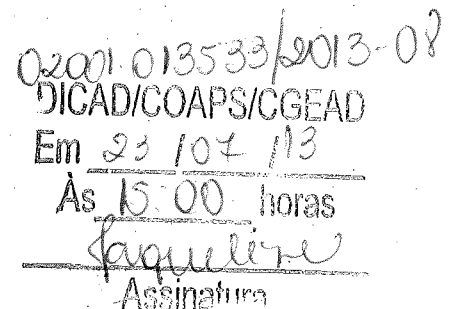 02001.013533/2013-08
DICAD/COAPS/CGEAD
Em 23 / 07 / 13
Às 15:00 horas
Jaqueline
Assinatura